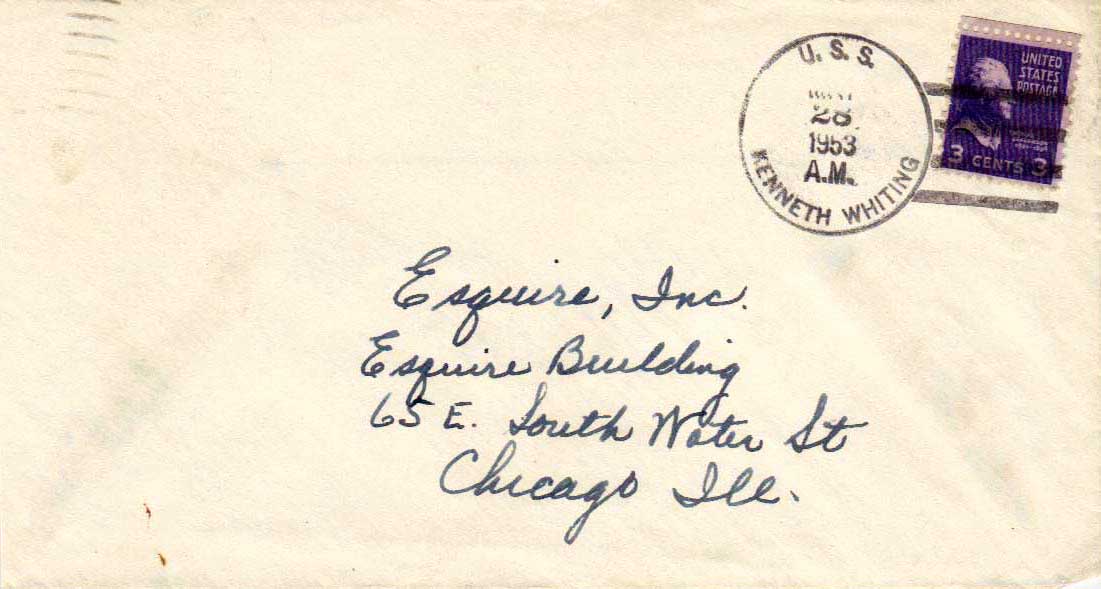 U. S. S.
28
1953
A.M.
KENNETH WHITING
UNITED
STATES
POSTAGE
3 CENTS 3
Esquire, Inc.
Esquire Building
65 E. South Water St
Chicago Ill.